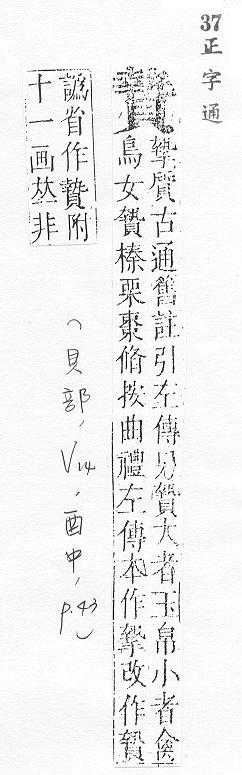 37
正字通
摯質古通舊註引左傳男贄大者玉帛小者禽
鳥女贄榛栗棗脩按曲禮左傳本作摯改作贄
譌省作贄附
十一画𠀤非
(貝部, V14, 酉中, p.43)